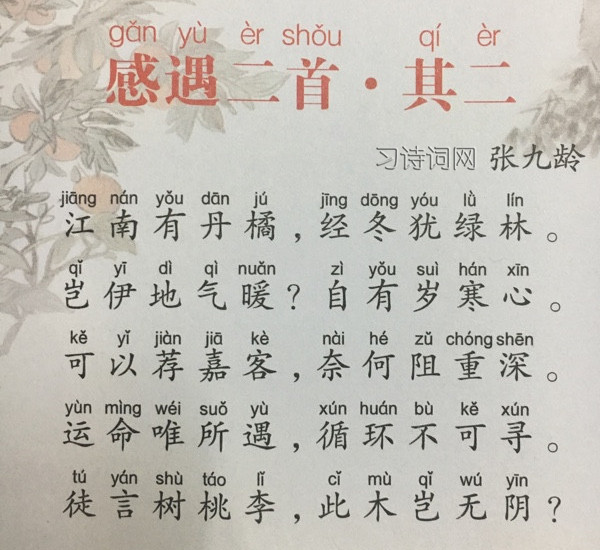 gǎn yù èr shǒu qí èr
感遇二首·其二
习诗词网 张九龄
jiāng nán yǒu dān jú jīng dōng yóu lǜ lín
江南有丹橘，经冬犹绿林。
qǐ yī dì qì nuǎn zì yǒu suì hán xīn
岂伊地气暖？自有岁寒心。
kě yǐ jiàn jiā kè nài hé zǔ chóng shēn
可以荐嘉客，奈何阻重深。
yùn mìng wéi suǒ yù xún huán bù kě xún
运命唯所遇，循环不可寻。
tú yán shù táo lǐ cǐ mù qǐ wú yīn
徒言树桃李，此木岂无阴？